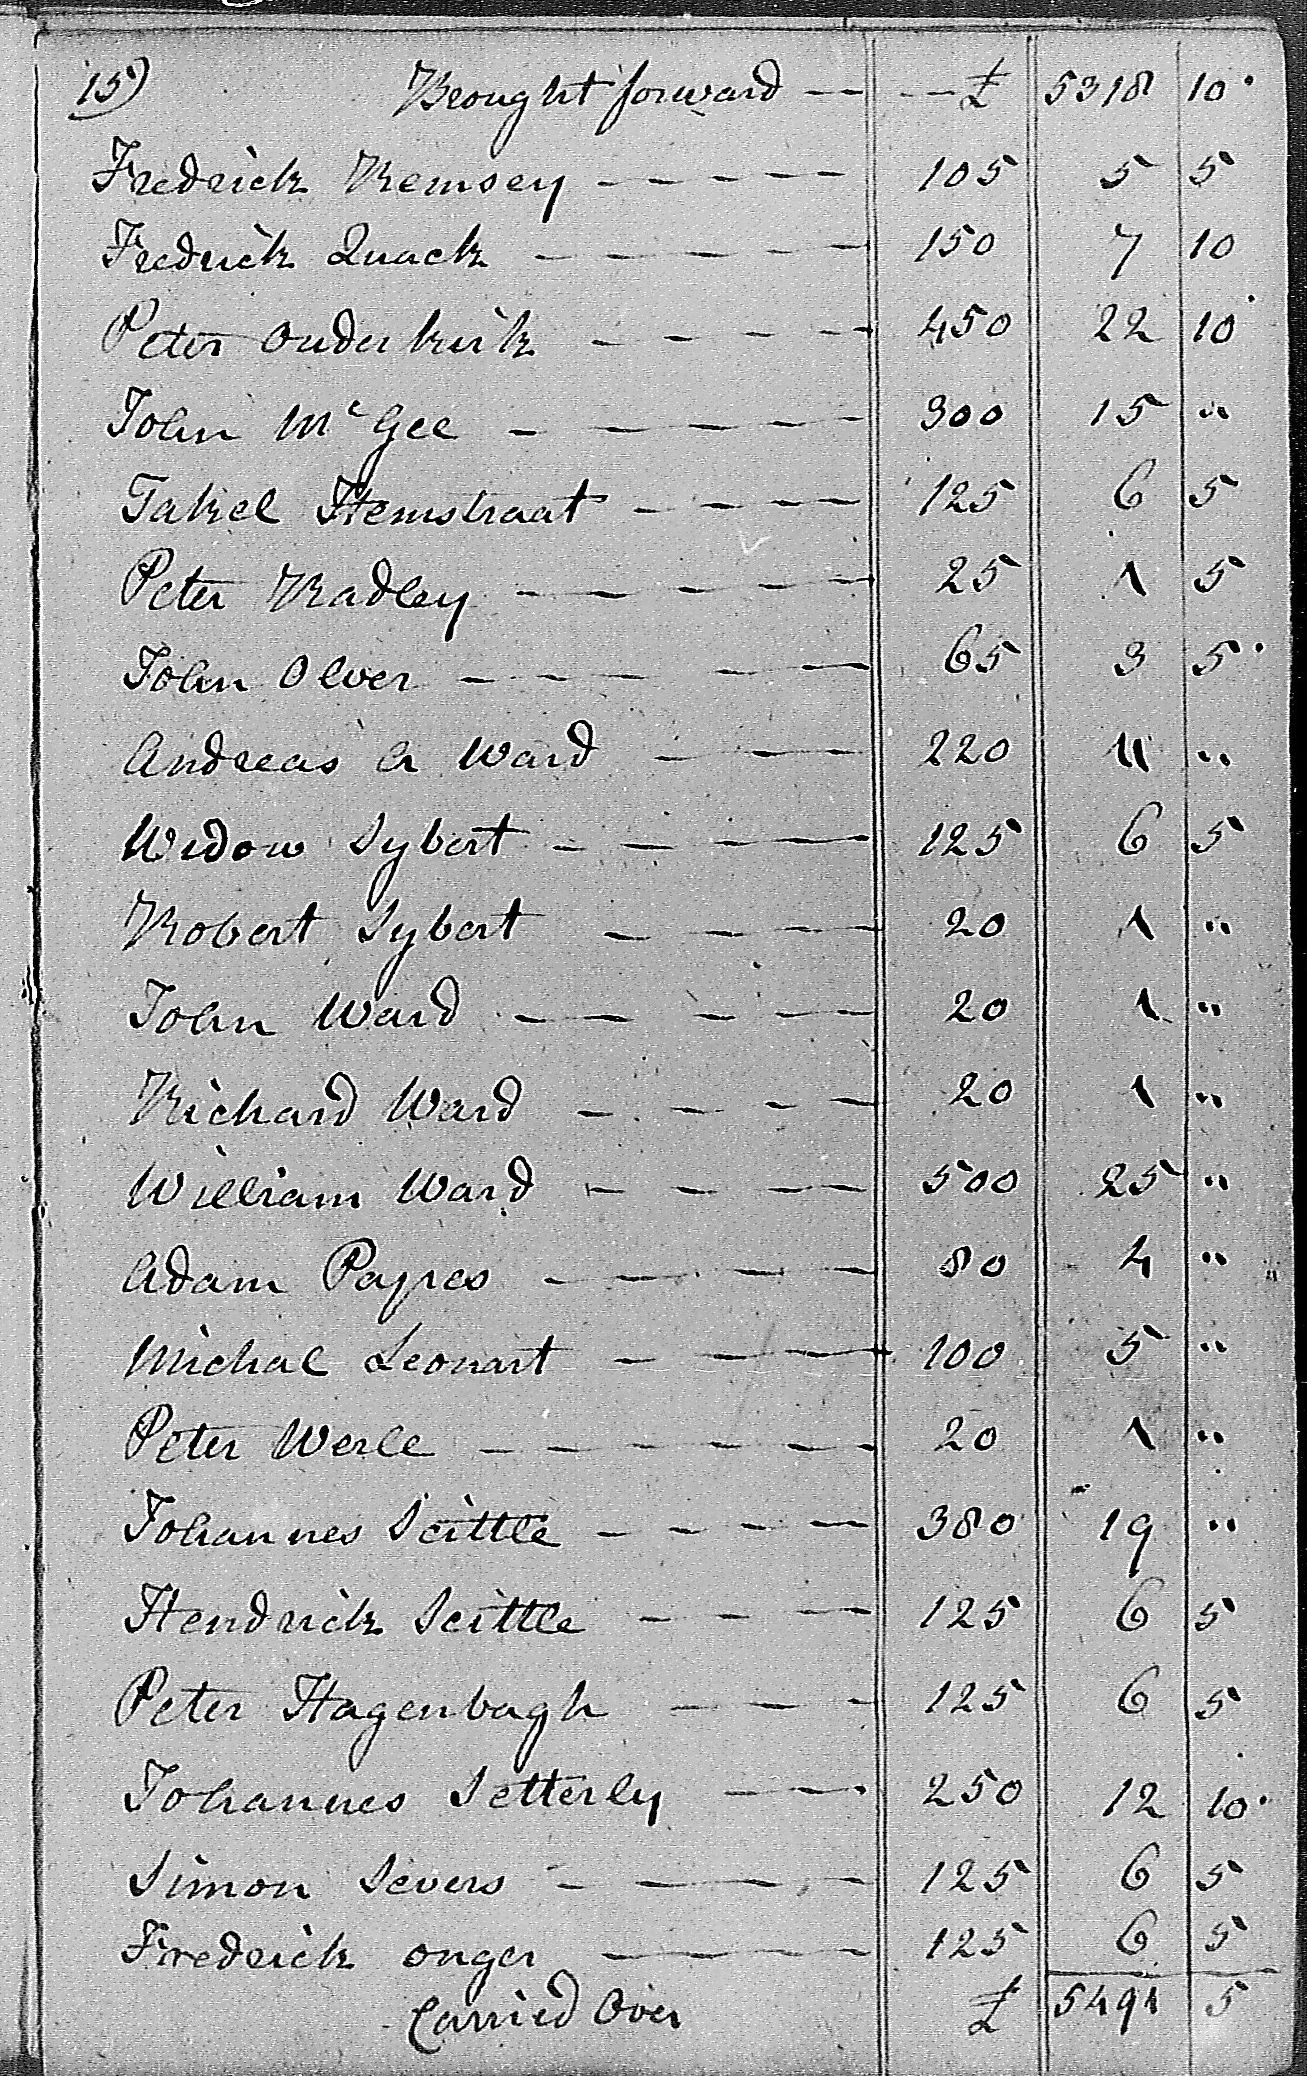 15) Brought forward £ 5318 10
Fredrick Remsey 105 5 5
Fredrick Quack 150 7 10
Peter Ouderkirk 450 22 10
John McGee 300 15 "
Takel Hemstraat 125 6 5
Peter Bradley 25 1 5
John Olver 65 3 5
Andreas A Ward 220 11 "
Widow Sybert 125 6 5
Robert Sybert 20 1 "
John Ward 20 1 "
Richard Ward 20 1 "
William Ward 500 25 "
Adam Papres 80 4 "
Michal Leonart 100 5 "
Peter Werle 20 1 "
Johannes Scittle 380 19 "
Hendrick Scittle 125 6 5
Peter Hagenbagh 125 6 5
Johannes Setterly 250 12 10
Simon Severs 125 6 5
Fredrick onger 125 6 5
Carried Over £ 5491 5